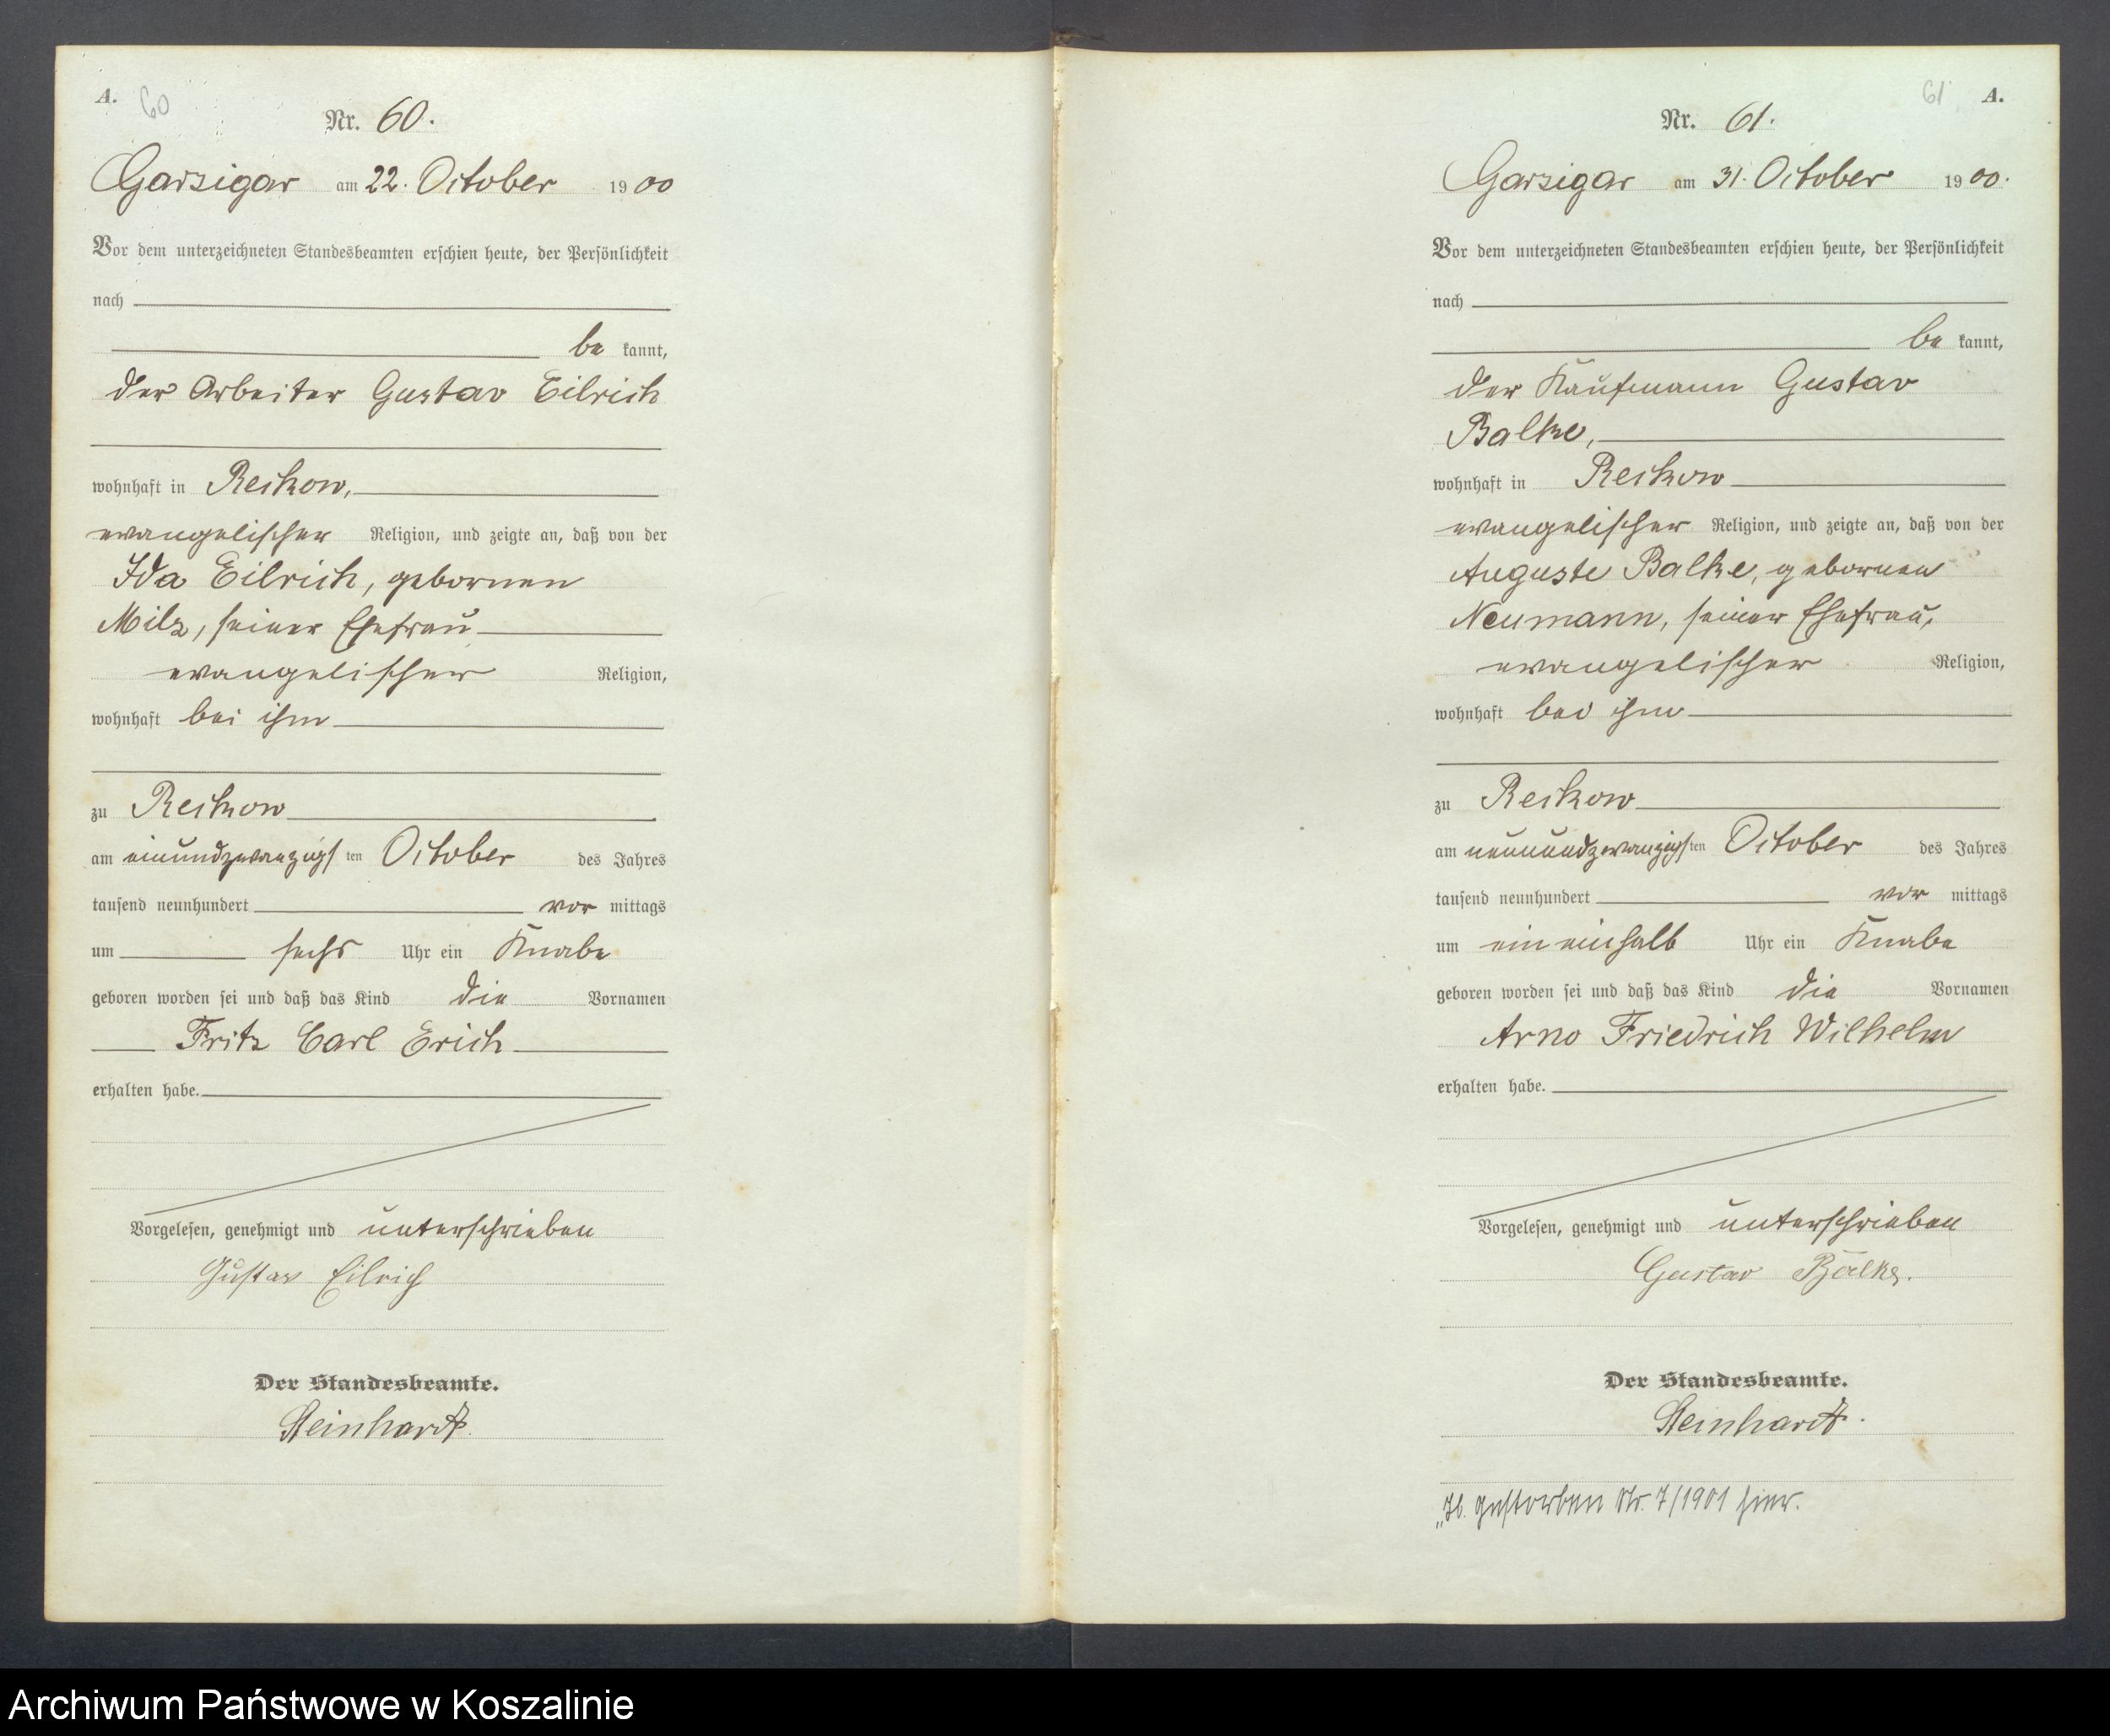 A. 60
Nr. 60.
Garzigar am 22. October 1900
Vor dem unterzeichneten Standesbeamten erschien heute, der Persönlichkeit
nach
be kannt,
der Arbeiter Gustav Eilrich
wohnhaft in Reckow,
evangelischer Religion, und zeigte an, daß von der
Ida Eilrich, gebornen
Milz, seiner Ehefrau
evangelischer Religion,
wohnhaft bei ihm
zu Reckow
am einundzwanzigsten October des Jahres
tausend neunhundert vor mittags
um sechs Uhr ein Knabe
geboren worden sei und daß das Kind die Vornamen
Fritz Carl Erich
erhalten habe.
Vorgelesen, genehmigt und unterschrieben
Gustav Eilrich
Der Standesbeamte.
Steinhardt.
61 A.
Nr. 61.
Garzigar am 31. October 1900.
Vor dem unterzeichneten Standesbeamten erschien heute, der Persönlichkeit
nach
be kannt,
der Kaufmann Gustav
Balke,
wohnhaft in Reckow
evangelischer Religion, und zeigte an, daß von der
Auguste Balke, gebornen
Neumann, seiner Ehefrau,
evangelischer Religion,
wohnhaft bei ihm
zu Reckow
am neunundzwanzigsten October des Jahres
tausend neunhundert vor mittags
um ein einhalb Uhr ein Knabe
geboren worden sei und daß das Kind die Vornamen
Arno Friedrich Wilhelm
erhalten habe.
Vorgelesen, genehmigt und unterschrieben
Gustav Balke.
Der Standesbeamte.
Steinhardt.
gestorben Nr. 7/1901 hier.
Archiwum Państwowe w Koszalinie